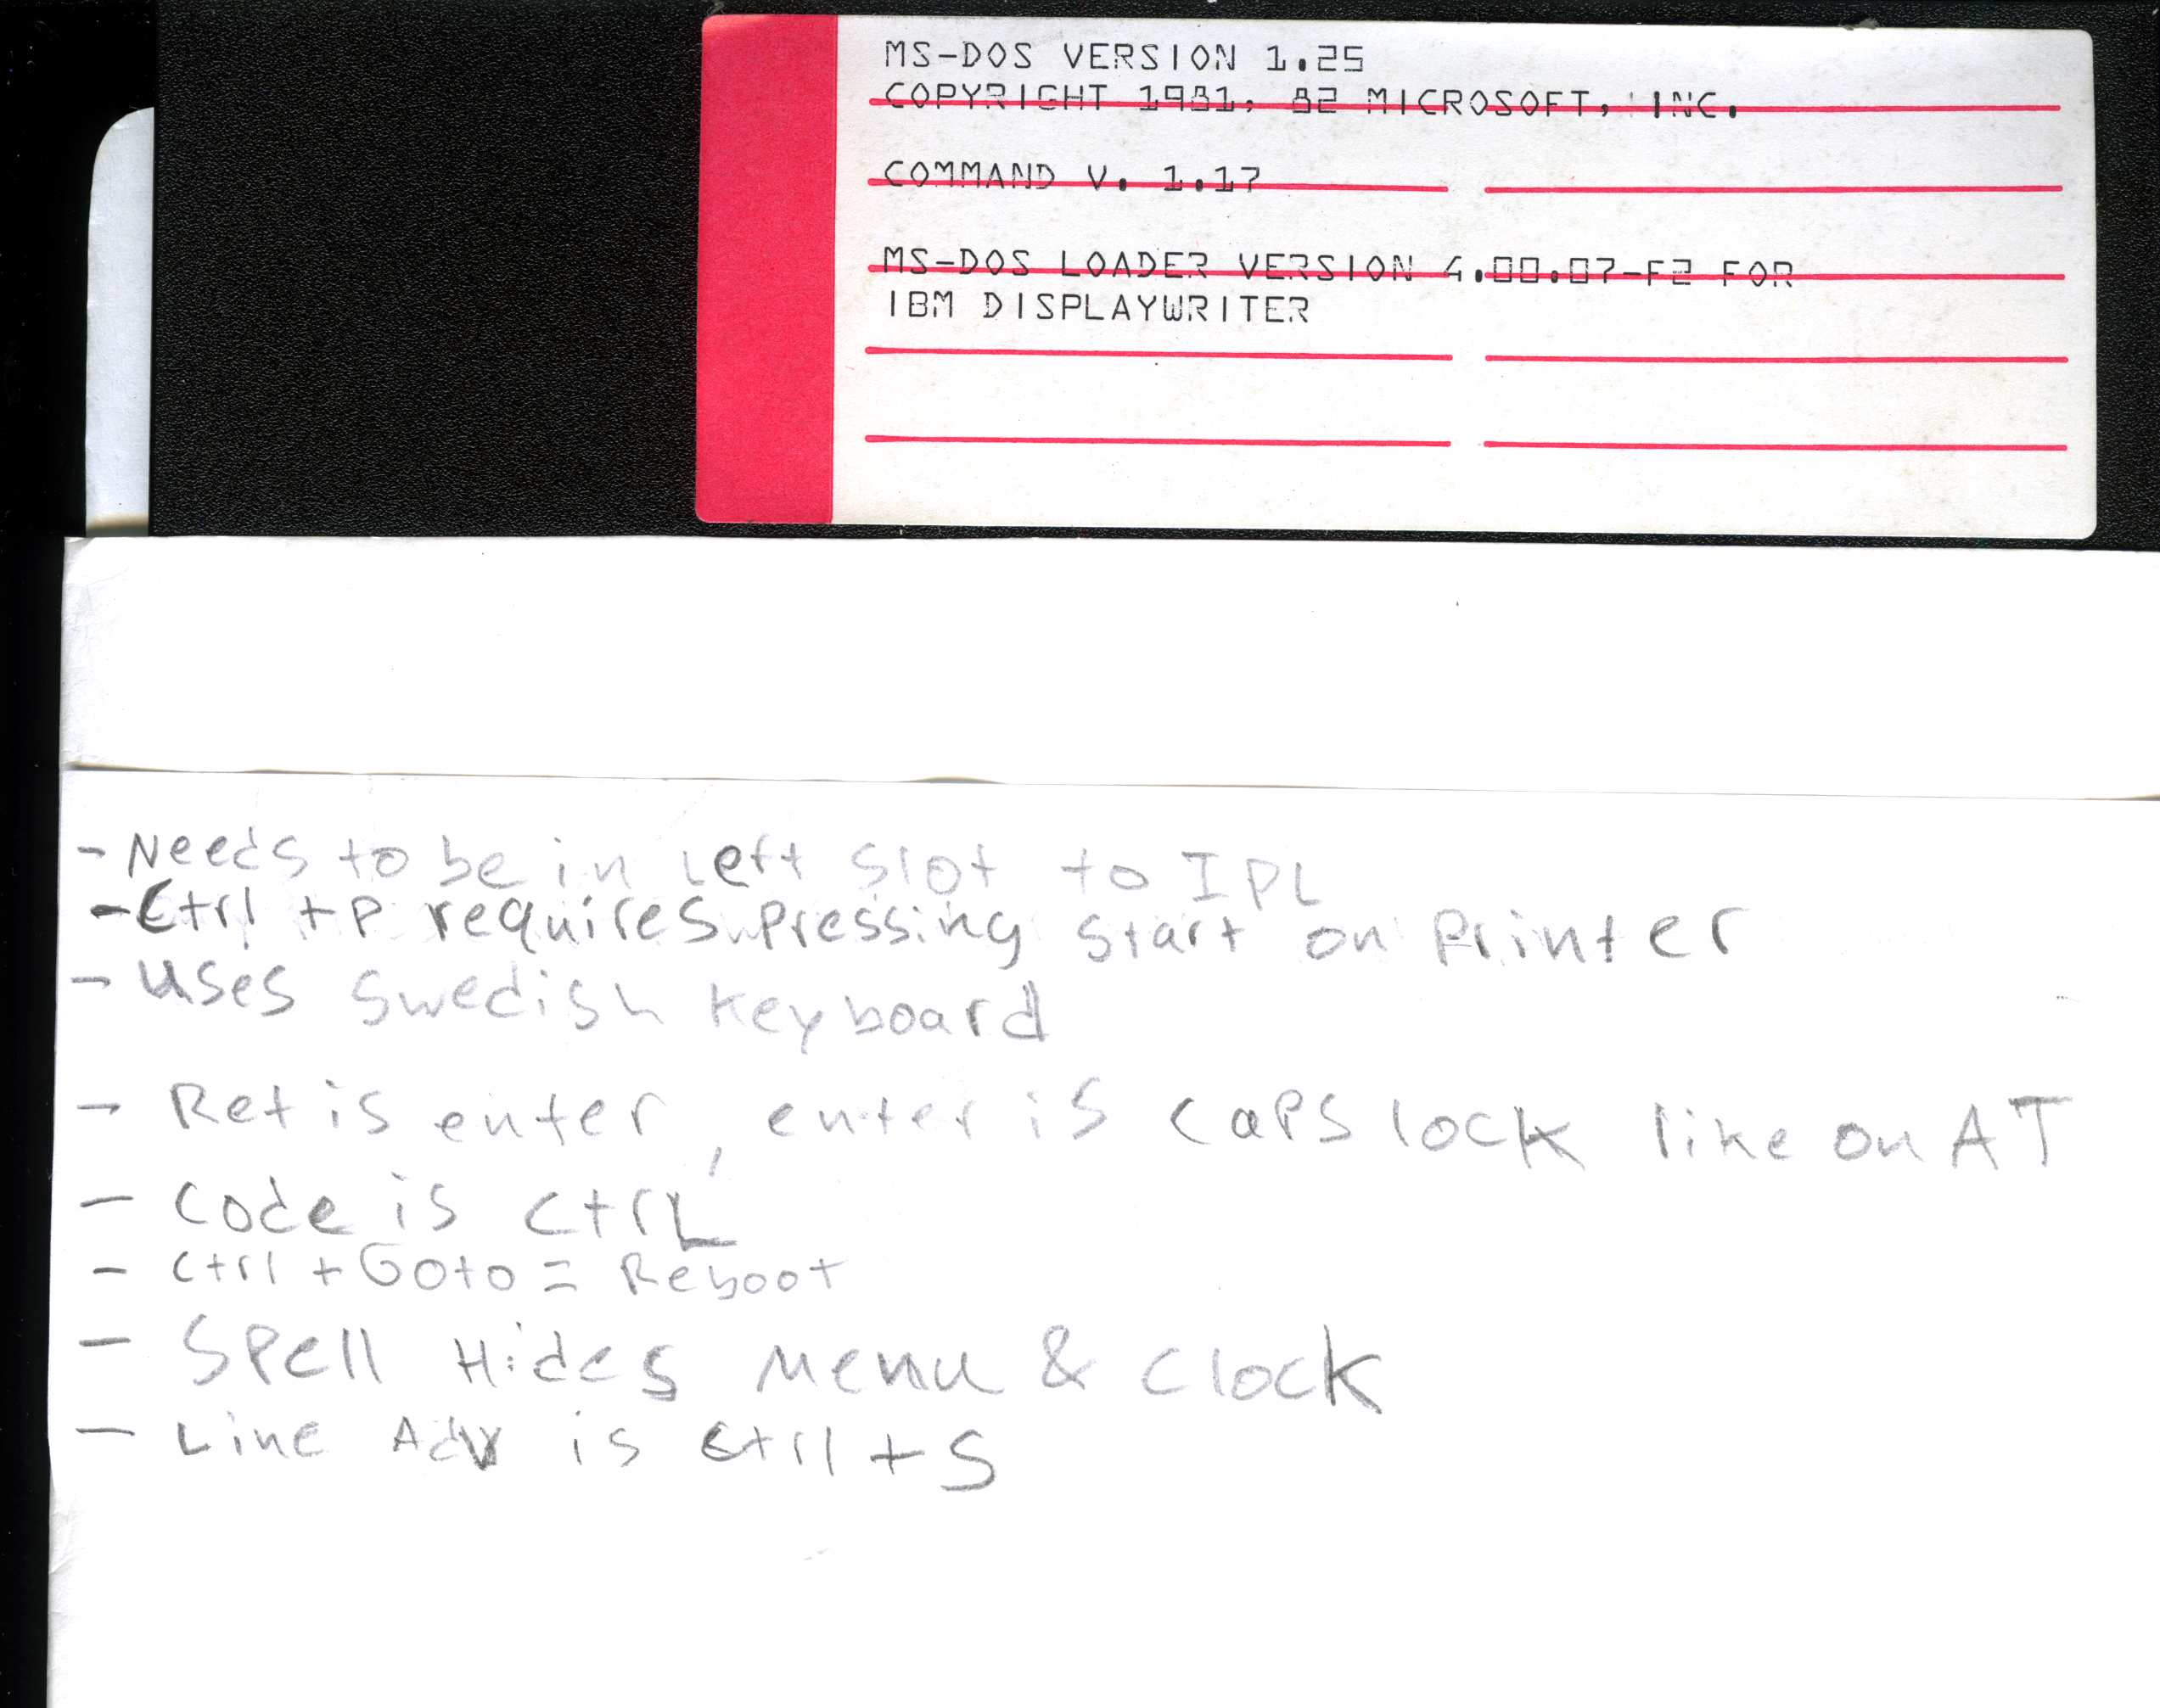 MS-DOS VERSION 1.25
COPYRIGHT 1981, 82 MICROSOFT, INC.
COMMAND V. 1.17
MS-DOS LOADER VERSION 4.00.07-F2 FOR
IBM DISPLAYWRITER
- Needs to be in Left Slot to IPL
- Ctrl +P requires pressing Start on Printer
- Uses Swedish keyboard
- Ret is enter, enter is caps lock like on AT
- Code is CtrL
- Ctrl + Goto = Reboot
- Spell Hides Menu & Clock
- Line Adv is Ctrl + S